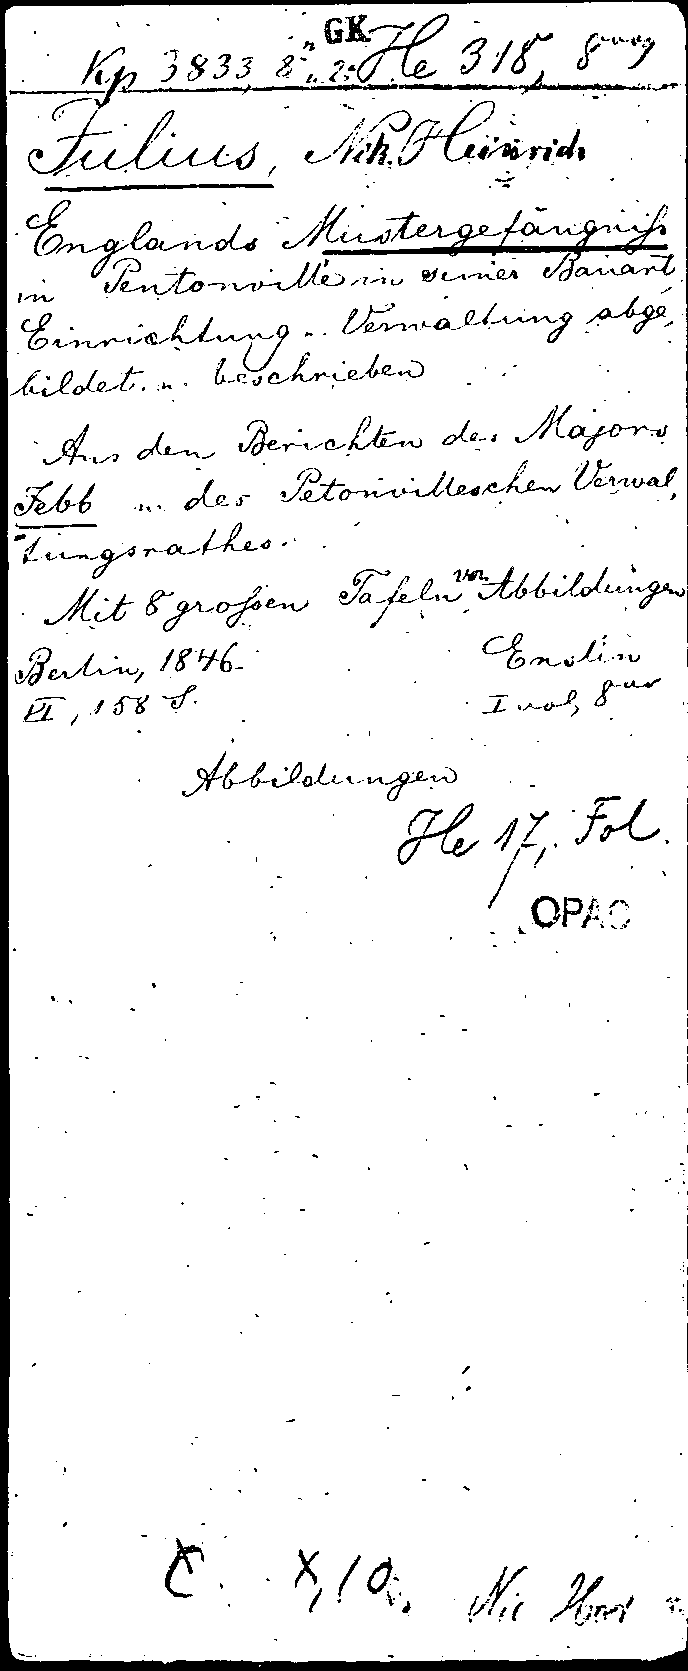 GK
Kp 3833, 8° u. 2° He 318, 8vo
Julius, Nik. Heinrich
Englands Mustergefängniss
in Pentonville in seiner Bauart,
Einrichtung u. Verwaltung abge,
bildet u. beschrieben
Aus den Berichten des Majors
Jebb u. des Petonvilleschen Verwal,
tungsrathes.
Mit 8 grossen Tafeln von Abbildungen
Berlin, 1846. Enslin
VI, 158 S. I vol, 8vo
Abbildungen
He 17, Fol.
OPAC
X, 10.